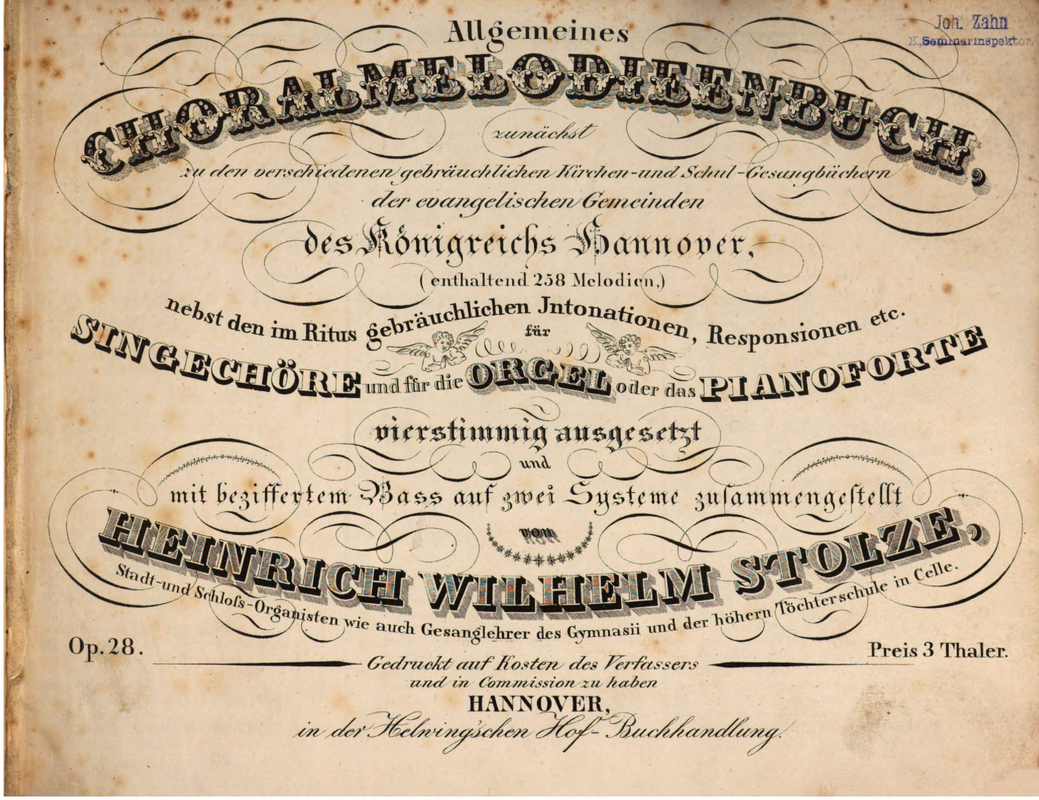 Allgemeines
Joh. Zahn
K. Seminarinspektor
CHORALMELODIEENBUCH,
zunächst
zu den verschiedenen gebräuchlichen Kirchen- und Schul-Gesangbüchern
der evangelischen Gemeinden
des Königreichs Hannover,
(enthaltend 258 Melodien,)
nebst den im Ritus gebräuchlichen Jntonationen, Responsionen etc.
für
SINGECHÖRE und für die ORGEL oder das PIANOFORTE
vierstimmig ausgesetzt
und
mit beziffertem Bass auf zwei Systeme zusammengestellt
von
HEINRICH WILHELM STOLZE,
Stadt-und Schloſs-Organisten wie auch Gesanglehrer des Gymnasii und der höhern Töchterschule in Celle.
Op. 28.
Preis 3 Thaler.
Gedruckt auf Kosten des Verfassers
und in Commission zu haben
HANNOVER,
in der Helwing'schen Hof-Buchhandlung.